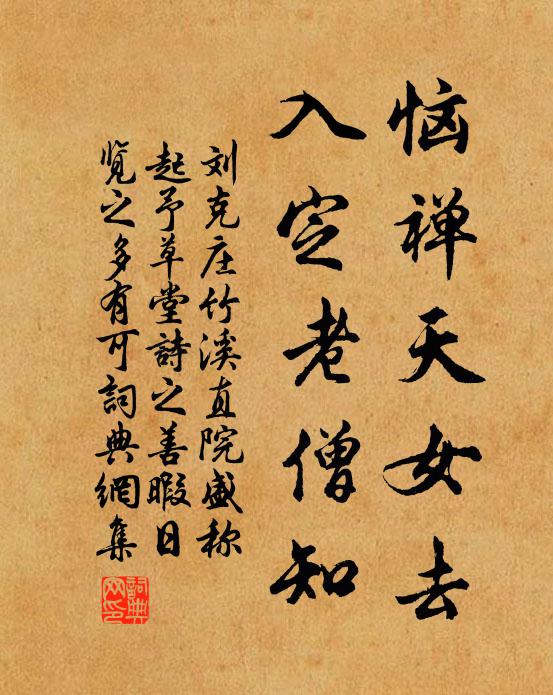 恼禅天女去
入定老僧知
刘克庄竹溪直院盛称
起予草堂詩之善暇日
览之多有可詞典網集
詞典
网印